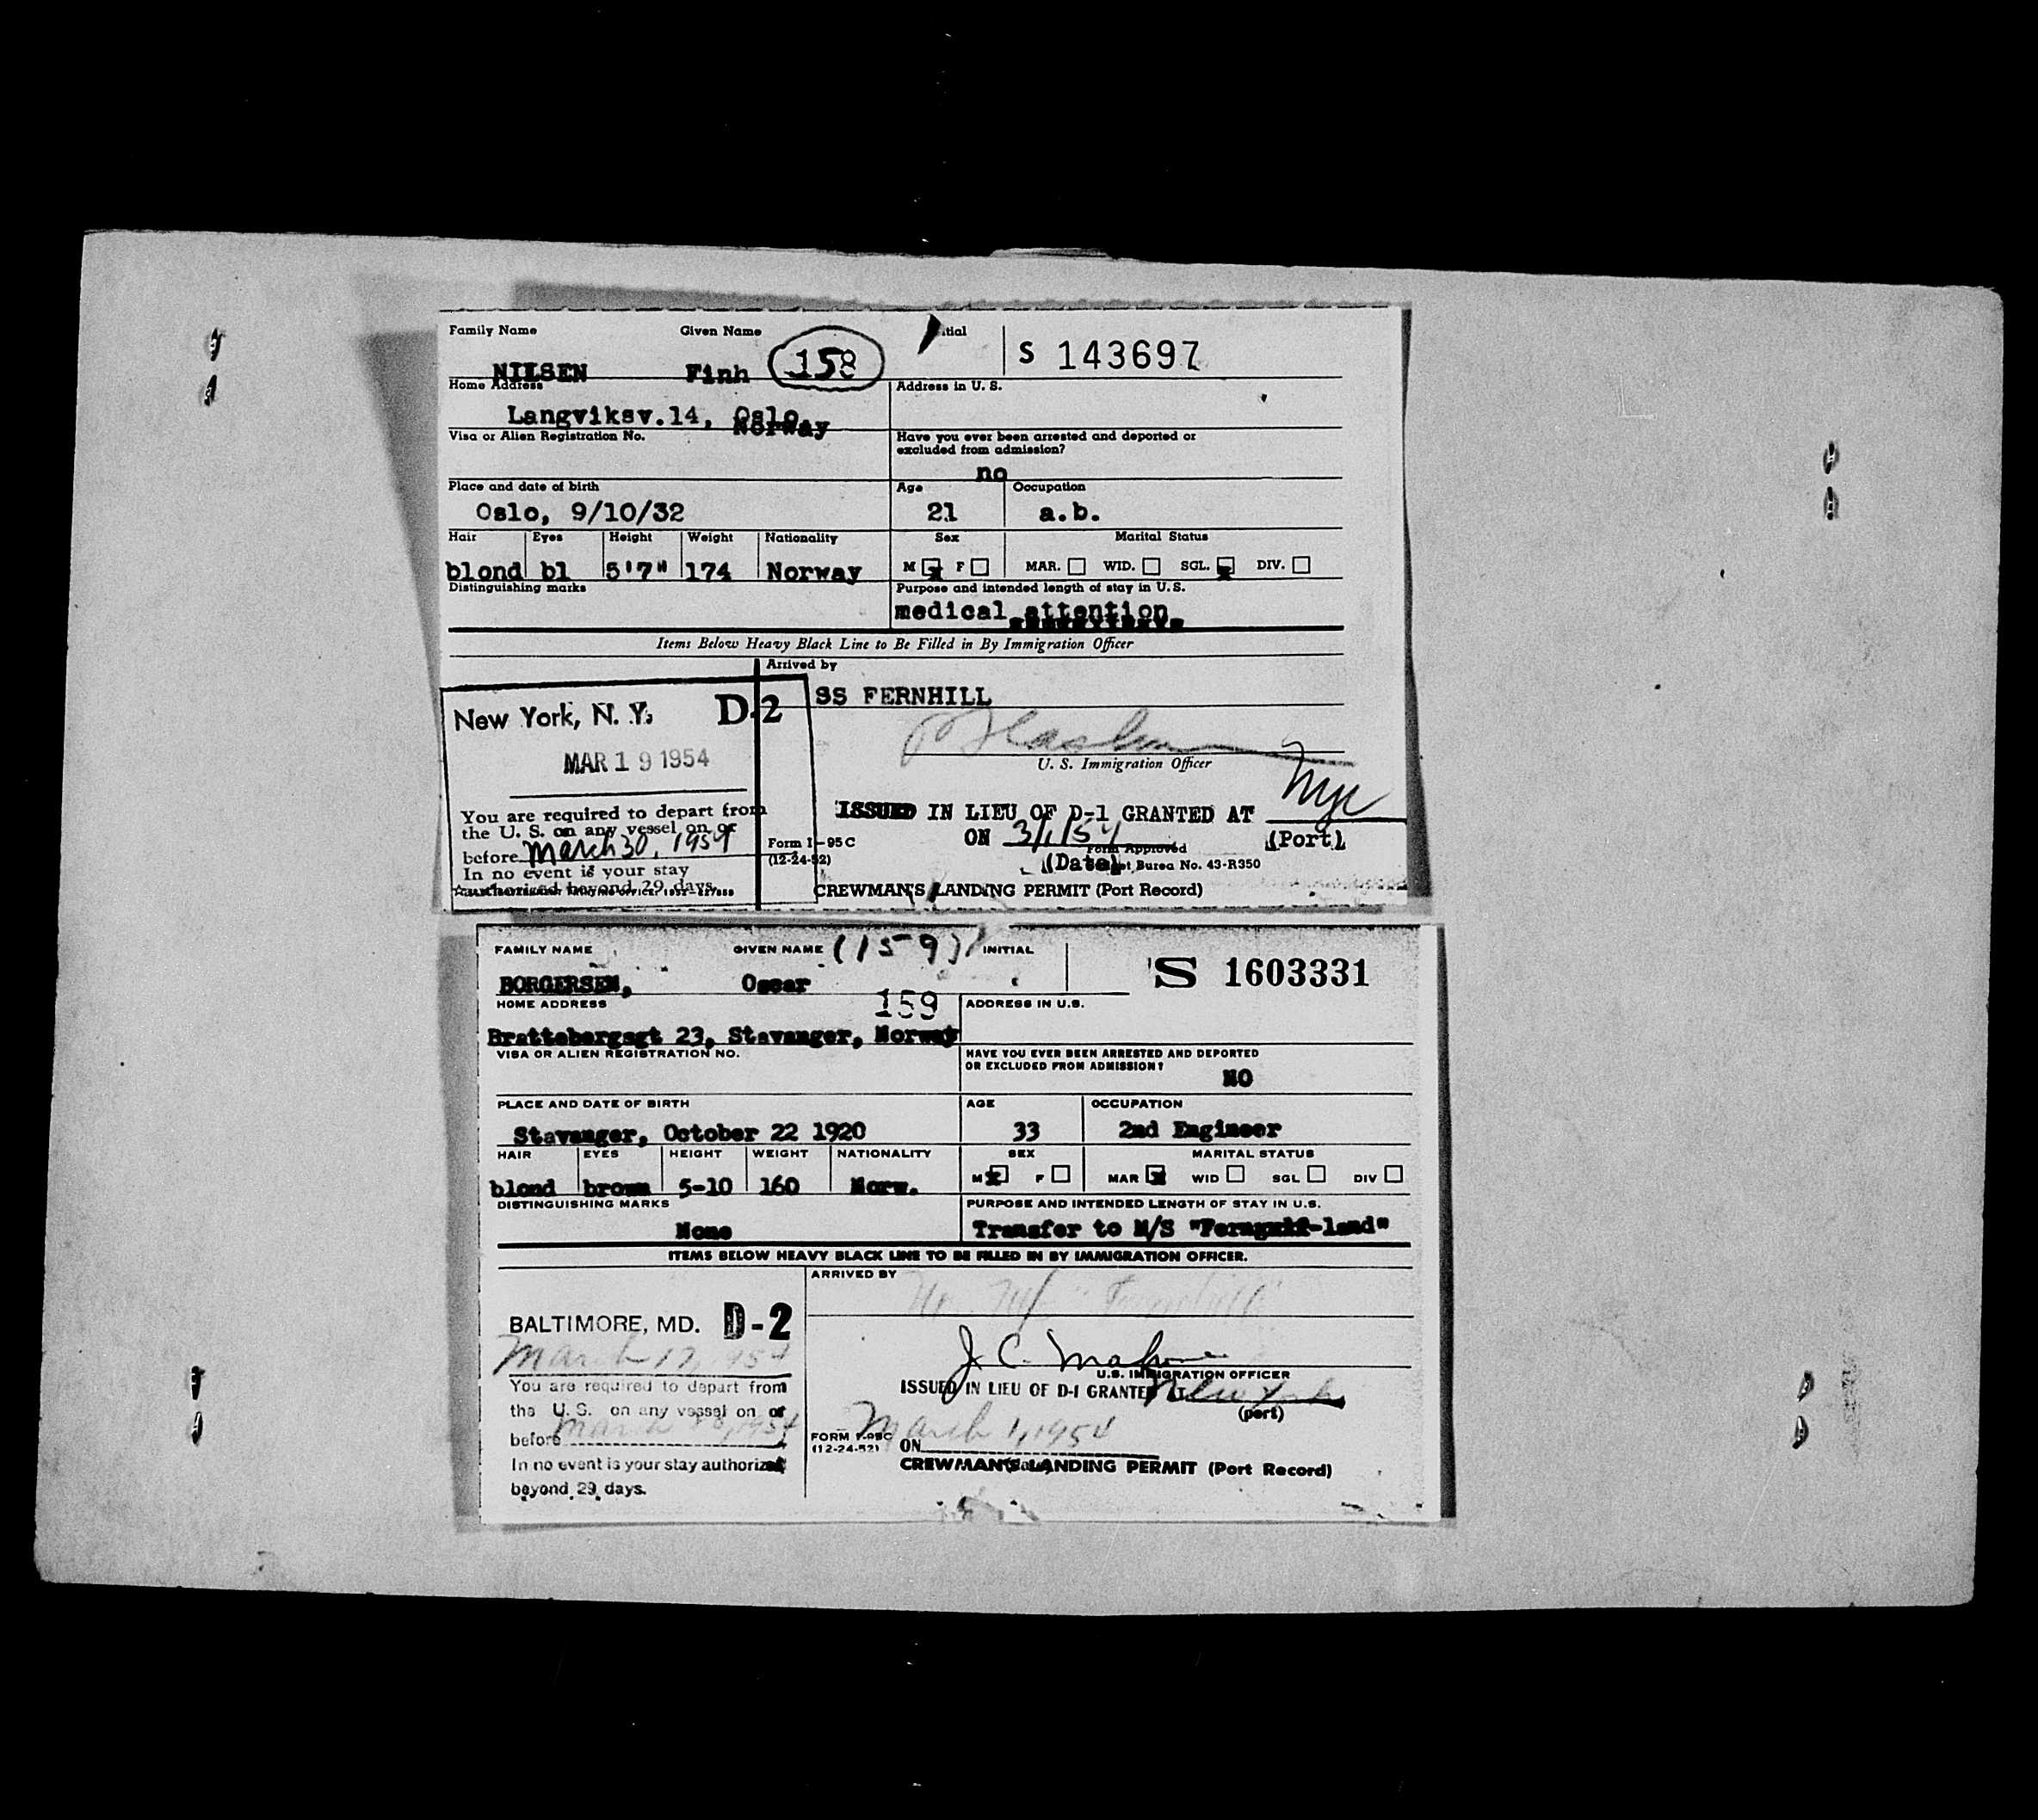 Family Name Given Name Initial
158
S 143697
NILSEN Finn
Home Address Address in U. S.
Langviksv.14, Oslo,
Norway
Visa or Alien Registration No. Have you ever been arrested and deported or
excluded from admission?
no
Place and date of birth Age Occupation
Oslo, 9/10/32 21 a.b.
Hair Eyes Height Weight Nationality Sex Marital Status
blond bl 5'7" 174 Norway M x F MAR. WID. SGL. x DIV.
Distinguishing marks Purpose and intended length of stay in U.S.
medical attention
Items Below Heavy Black Line to Be Filled in By Immigration Officer
Arrived by
SS FERNHILL
New York, N. Y. D-2
MAR 19 1954
U. S. Immigration Officer
You are required to depart from
the U. S. on any vessel on or
before March 30, 1954
In no event is your stay
authorized beyond 29 days.
ISSUED IN LIEU OF D-1 GRANTED AT nyc
ON 3/1/54 (Port)
Form Approved
(Date) Burea No. 43-R350
Form I-95C
(12-24-52)
CREWMAN'S LANDING PERMIT (Port Record)
FAMILY NAME GIVEN NAME (159) INITIAL
S 1603331
BORGERSEN, Oscar
159
HOME ADDRESS ADDRESS IN U.S.
Brattebergsgt 23, Stavanger, Norway
VISA OR ALIEN REGISTRATION NO. HAVE YOU EVER BEEN ARRESTED AND DEPORTED
OR EXCLUDED FROM ADMISSION?
NO
PLACE AND DATE OF BIRTH AGE OCCUPATION
Stavanger, October 22 1920 33 2nd Engineer
HAIR EYES HEIGHT WEIGHT NATIONALITY SEX MARITAL STATUS
blond brown 5-10 160 Norw. M x F MAR x WID SGL DIV
DISTINGUISHING MARKS PURPOSE AND INTENDED LENGTH OF STAY IN U.S.
None Transfer to M/S "Ferngulf-land"
ITEMS BELOW HEAVY BLACK LINE TO BE FILLED IN BY IMMIGRATION OFFICER.
ARRIVED BY
BALTIMORE, MD. D-2
March 17, 1954
J. C.
U.S. IMMIGRATION OFFICER
You are required to depart from
the U. S. on any vessel on or
before March 1954
In no event is your stay authorized
beyond 29 days.
ISSUED IN LIEU OF D-1 GRANTED AT New York
(port)
FORM I-95C
(12-24-52)
ON March 1, 1954
CREWMAN'S LANDING PERMIT (Port Record)